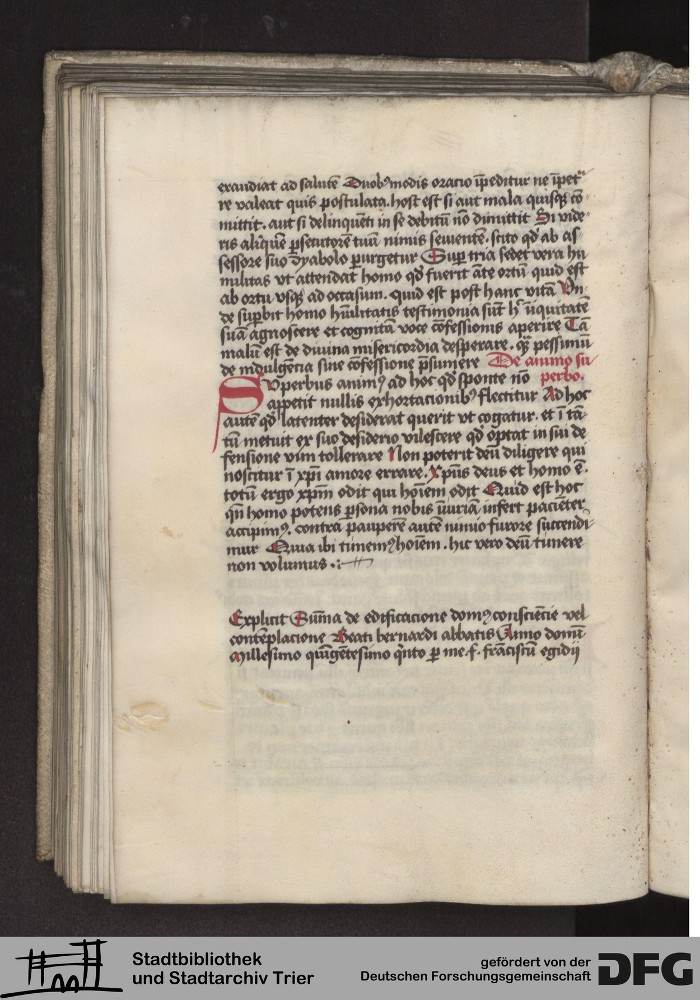 exaudiat ad salutē Duobꝰ modis oracio īpeditur ne īpet̄
re valeat quis postulata. hoc est si aut mala quisqꝫ cō
mittit. aut si delinquēti in se debitū nō dimittit Si vide
ris aliquē ꝑsecutorē tuū nimis seuientē. scito qd̓ ab as
sessore suo dyabolo ꝑurgetur Suꝑ tria sedet vera hu
militas vt attendat homo qd̓ fuerit āte ortū quid est
ab ortu vsqꝫ ad occasum. quid est post hanc vitā Vn̄
de suꝑbit homo hūilitatis testimonia sūt h̓ īiquitatē
suā agnoscere et cognitā voce cōfessionis aperire Tā
malū est de diuina misericordia desperare. qꝫ pessimū
de indulgēcia sine cōfessione p̄sumere De animo su
perbo.
Superbus animꝰ ad hoc qd̓ sponte nō
appetit nullis exhortacionibꝰ flectitur Ad hoc
autē qd̓ latenter desiderat querit vt cogatur. et ī tā
tū metuit ex suo desiderio vilescere qd̓ optat in sui de
fensione vim tollerare Non poterit deū diligere qui
noscitur ī xp̄i amore errare. Xp̄us deus et homo ē.
totū ergo xp̄m odit qui hoīem odit Quid est hoc
qn̄ homo potens ꝑsona nobis iniuriā infert paciēter
accipimꝰ. contra pauperē autē nimio furore succendi
mur Quia ibi timemꝰ hoīem. hic vero deū timere
non volumus .:
Explicit Sūma de edificacione domꝰ consciēcie vel
contēplacione Beati bernardi abbatis Anno domī
Millesimo quīgētesimo qͥnto ꝑ me .f. frāciscū egidij
Stadtbibliothek
und Stadtarchiv Trier
gefördert von der
Deutschen Forschungsgemeinschaft
DFG